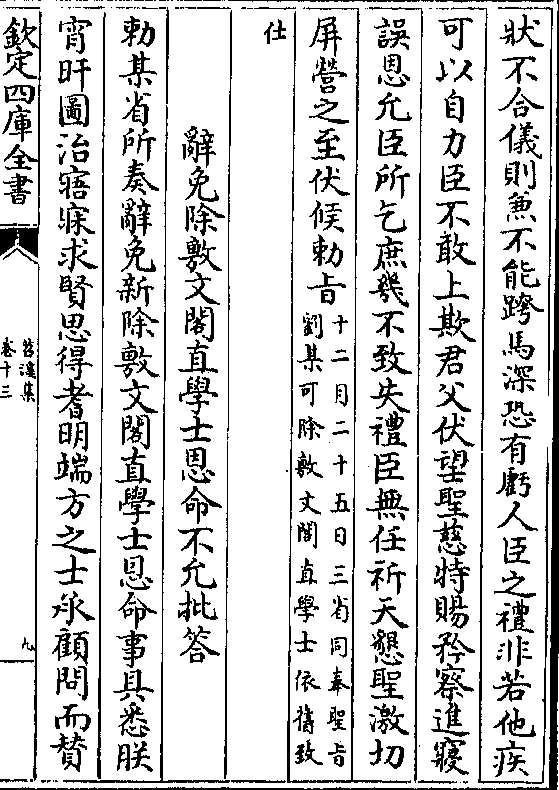 狀不合儀則兼不能跨馬深恐有虧人臣之禮非若他疾
可以自力臣不敢上欺君父伏望聖慈特賜矜察進寢
誤恩允臣所乞庶幾不致失禮臣無任祈天懇聖激切
屏營之至伏候勅旨十二月二十五日三省同奉聖旨
劉某可除敷文閣直學士依舊致
仕
辭免除敷文閣直學士恩命不允批答
勅某省所奏辭免新除敷文閣直學士恩命事具悉朕
宵旰圖治寤寐求賢思得耆明端方之士承顧問而贊
欽定四庫全書
苕溪集
卷十三
九